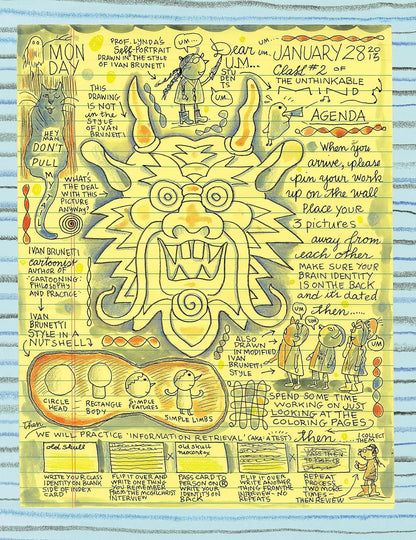 MON
DAY
PROF. LYNDA'S
Self-PORTRAIT
DRAWN IN THE STYLE
OF IVAN BRUNETTI
UM...
UM...
UM...
Dear
U.M...
STU
DEN
TS
JANUARY 28 2013
Class #2 OF
THE UNTHINKABLE
MIND
THIS
DRAWING
IS NOT
in the
STYLE
OF IVAN
BRUNETTI
HEY
MAN
DON'T
PULL
M
WHAT'S
THE DEAL
WITH THIS
PICTURE
ANYWAY?
AGENDA
When you
arrive, please
pin your work
up on the wall
Place your
3 pictures
away from
each other
MAKE SURE YOUR
BRAIN IDENTITY
IS ON THE BACK
and it's dated
then......
IVAN BRUNETTI
cartoonist
AUTHOR OF
"CARTOONING:
PHILOSOPHY
AND PRACTICE"
IVAN
BRUNETTI
STYLE IN A
NUTSHELL
CIRCLE
HEAD
RECTANGLE
BODY
SIMPLE
FEATURES
SIMPLE LIMBS
ALSO
DRAWN
IN MODIFIED
IVAN
BRUNETTI
STYLE
UM
UM
UM
SPEND SOME TIME
WORKING ON JUST
LOOKING AT THE
COLORING PAGES
then
WE WILL PRACTICE 'INFORMATION RETRIEVAL' (AKA: A TEST)
then
COLLECT
THEM
old Skull
old Skull
WRITE YOUR CLASS
IDENTITY ON BLANK
SIDE OF INDEX
CARD
FLIP IT OVER AND
WRITE ONE THING
YOU REMEMBER
FROM THE MCGILCHRIST
INTERVIEW
PASS CARD TO
PERSON ON
WRITE YOUR
IDENTITY ON
BACK
FLIP IT OVER
WRITE ANOTHER
THING FROM THE
INTERVIEW - NO
REPEATS
REPEAT
PROCESS
TWO MORE
TIMES -
THEN REVIEW